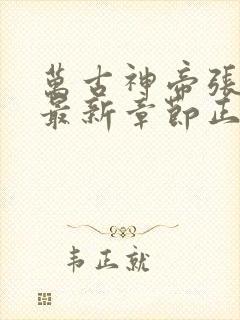 萬古神帝張
最新章節正
韦正就